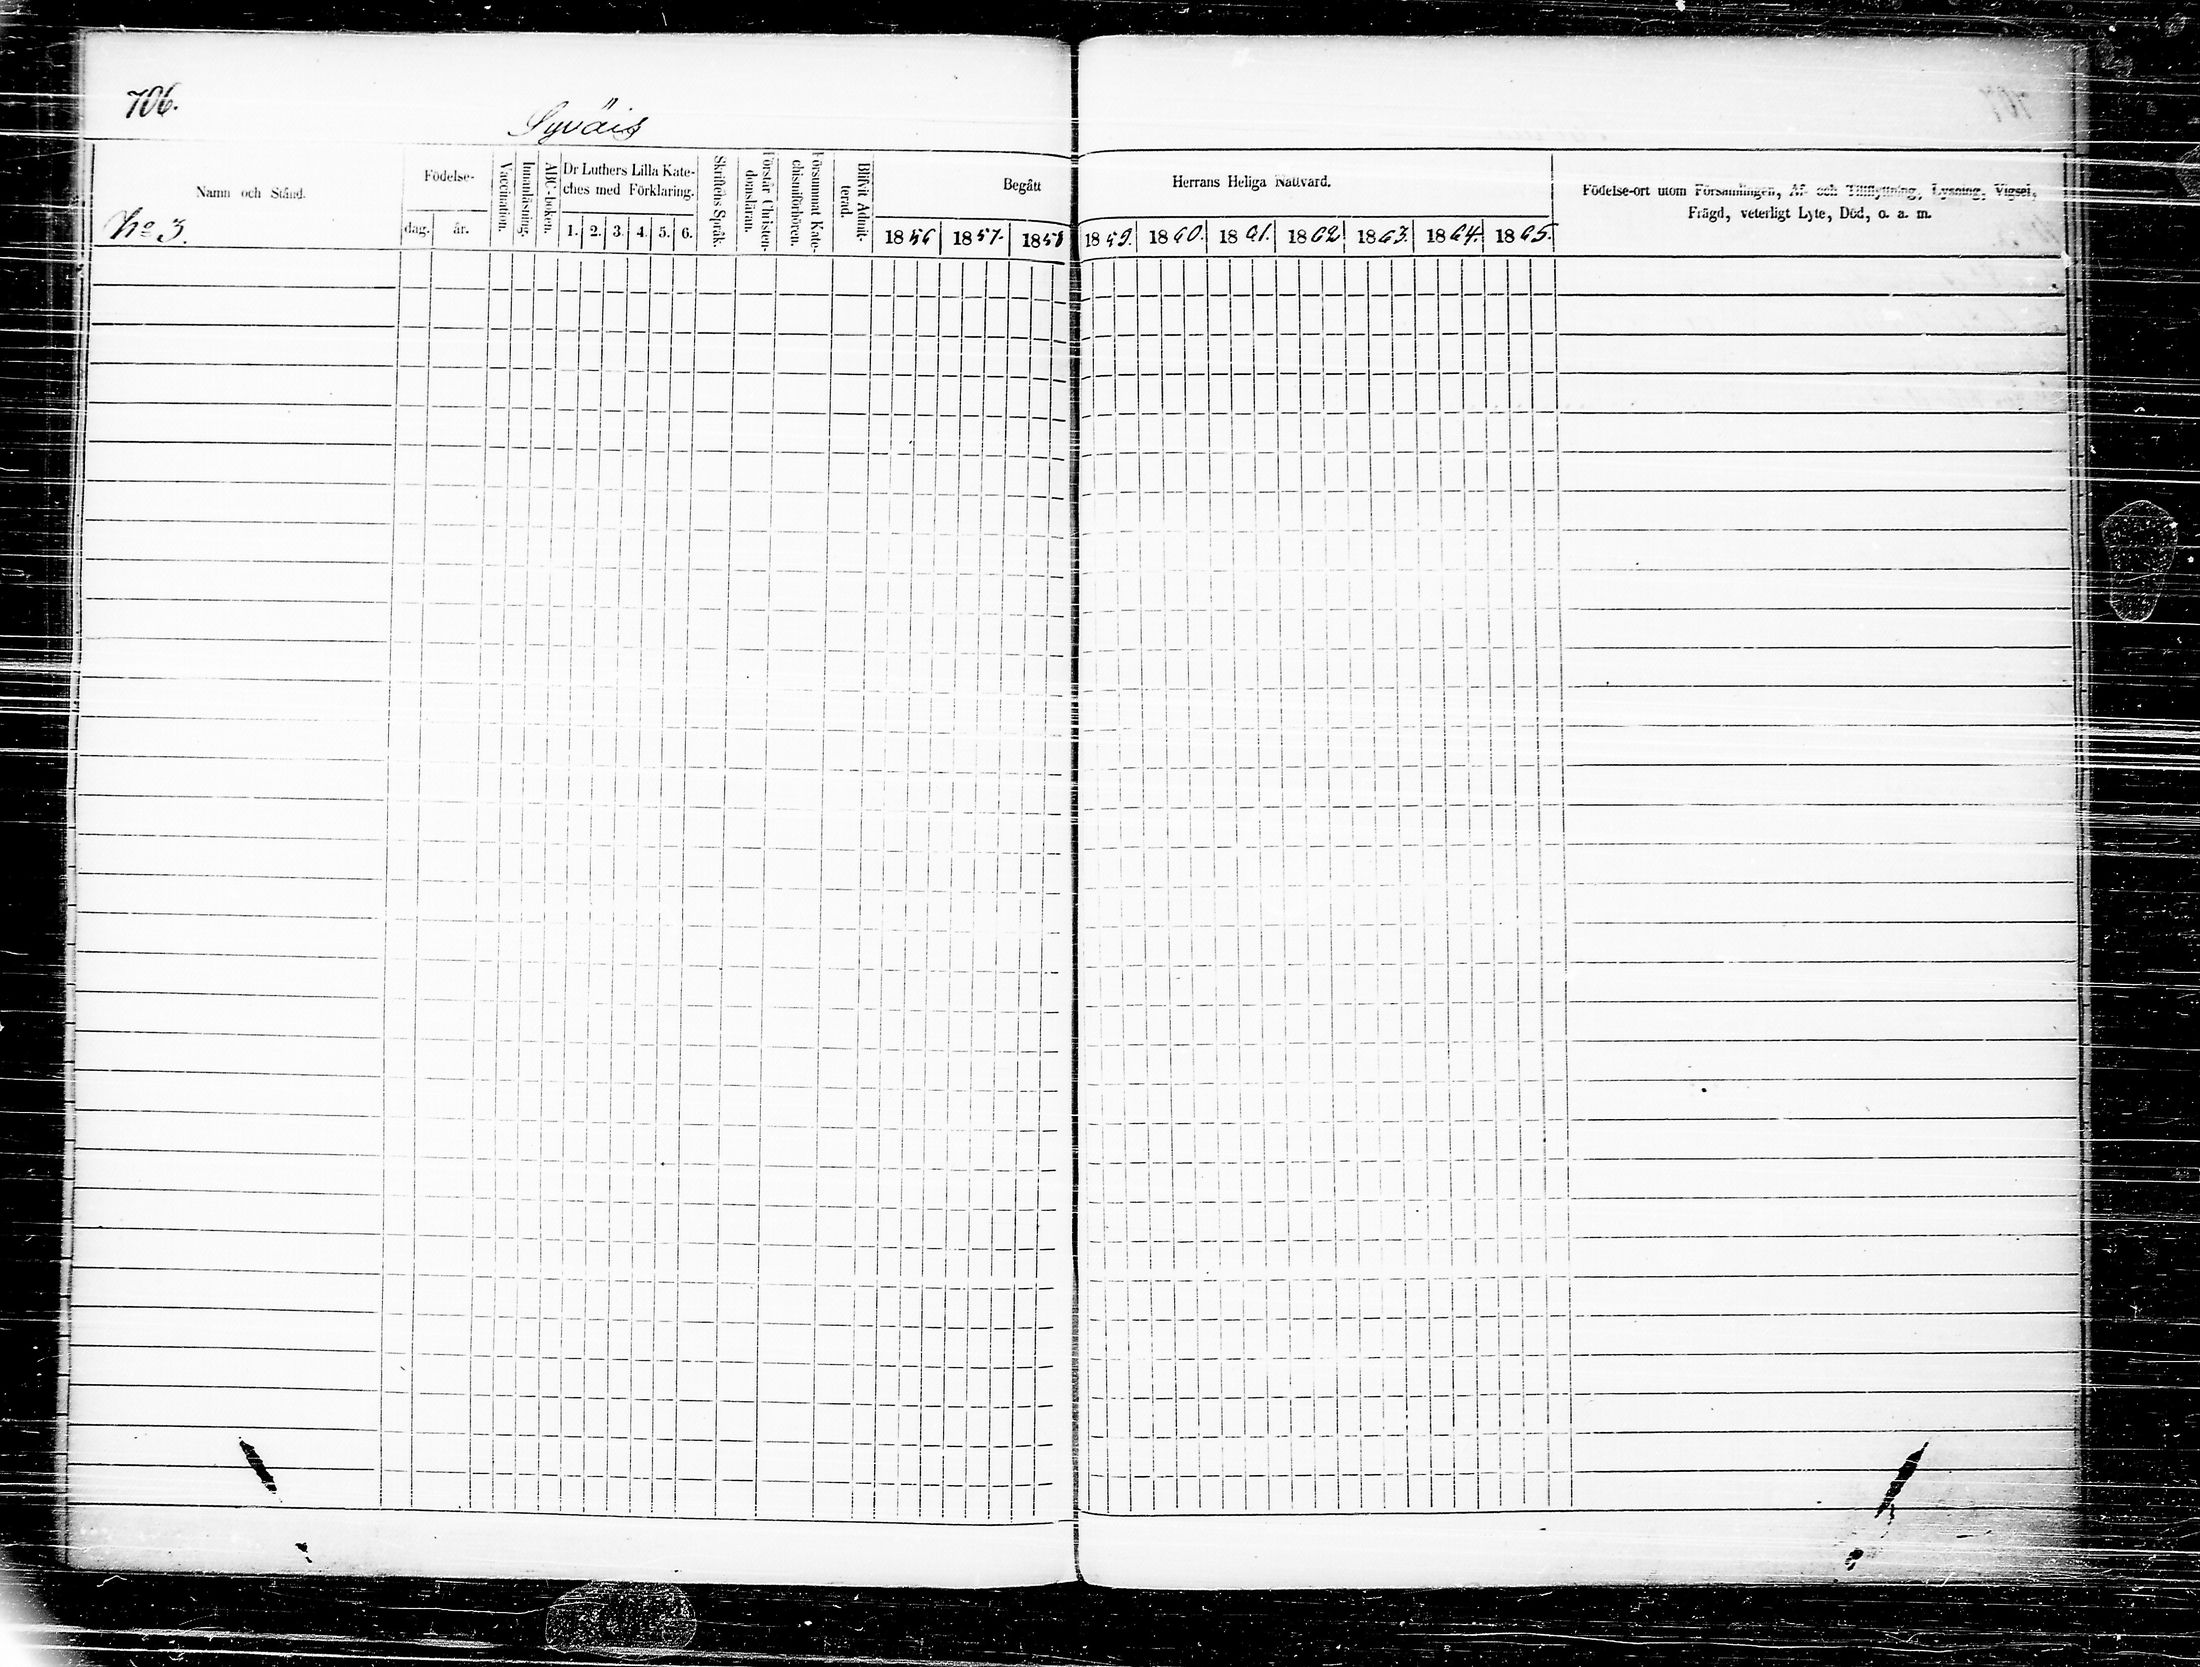 706.
Syväis
Namn och Stånd.
No 3.
Födelse-
dag.
år.
Vaccination.
Innanläsning.
ABC-boken.
Dr Luthers Lilla Kate-
ches med Förklaring.
1. 2. 3. 4. 5. 6.
Skriftens Språk.
Förstår Christen-
domsläran.
Försummat Kate-
chismiförhören.
Blifvit Admit-
terad.
Begått
1856 1857. 1858
Herrans Heliga Nattvard.
1859. 1860. 1861. 1862 1863. 1864. 1865.
Födelse-ort utom Församlingen, Af- och Tillflyttning, Lysning, Vigsel,
Frägd, veterligt Lyte, Död, o. a. m.